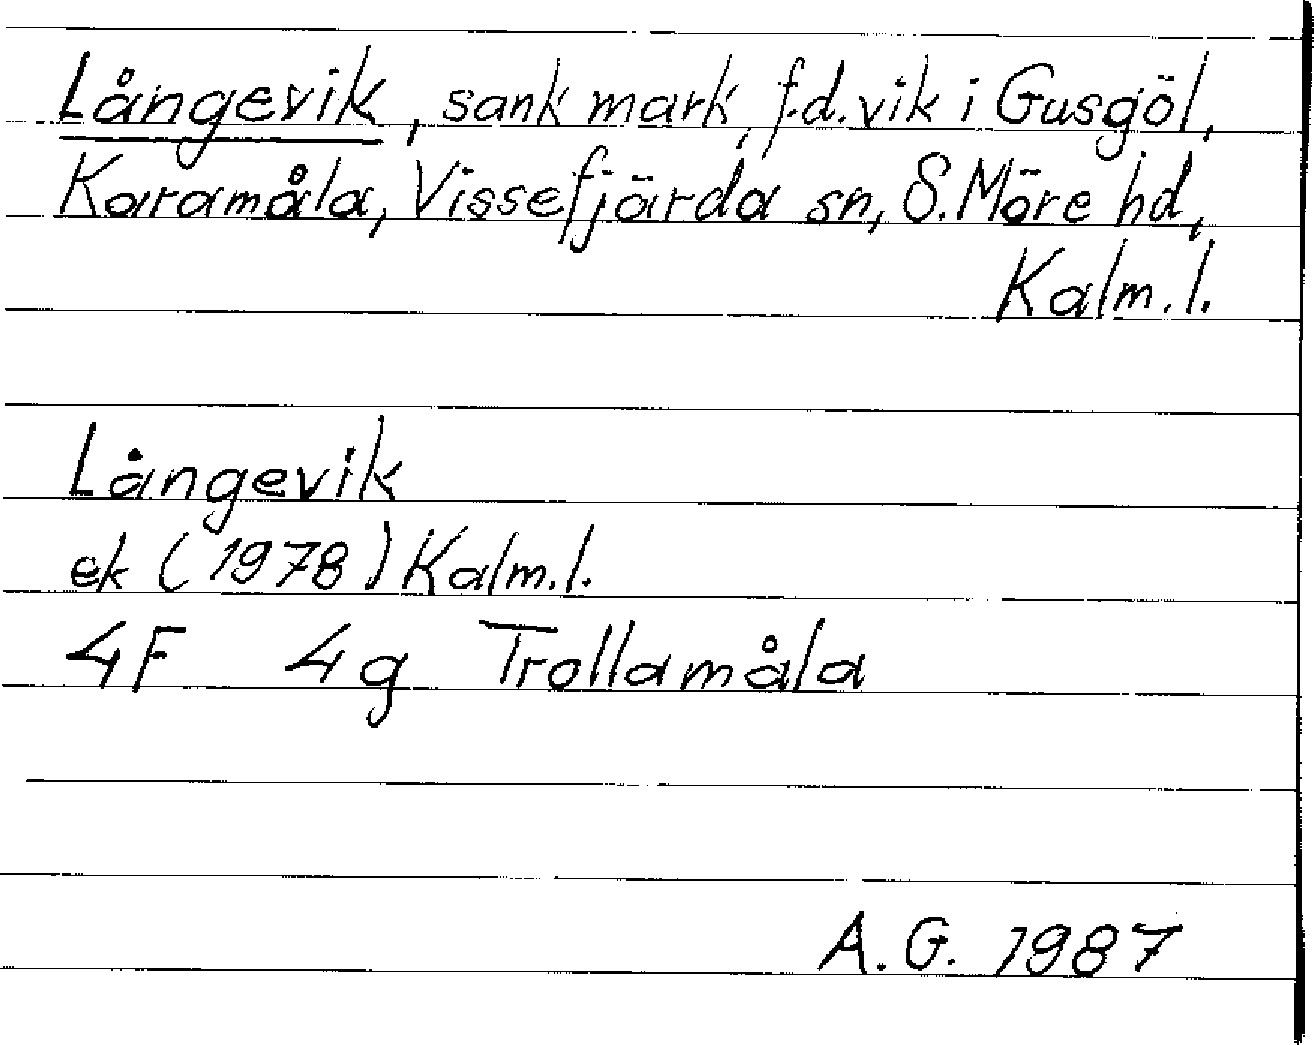 Långevik, sank mark, f.d. vik i Gusgöl,
Karamåla, Vissefjärda sn, S. Möre hd,
Kalm. l.
Långevik
ek (1978) Kalm. l.
4F 4g Trollamåla
A. G. 1987